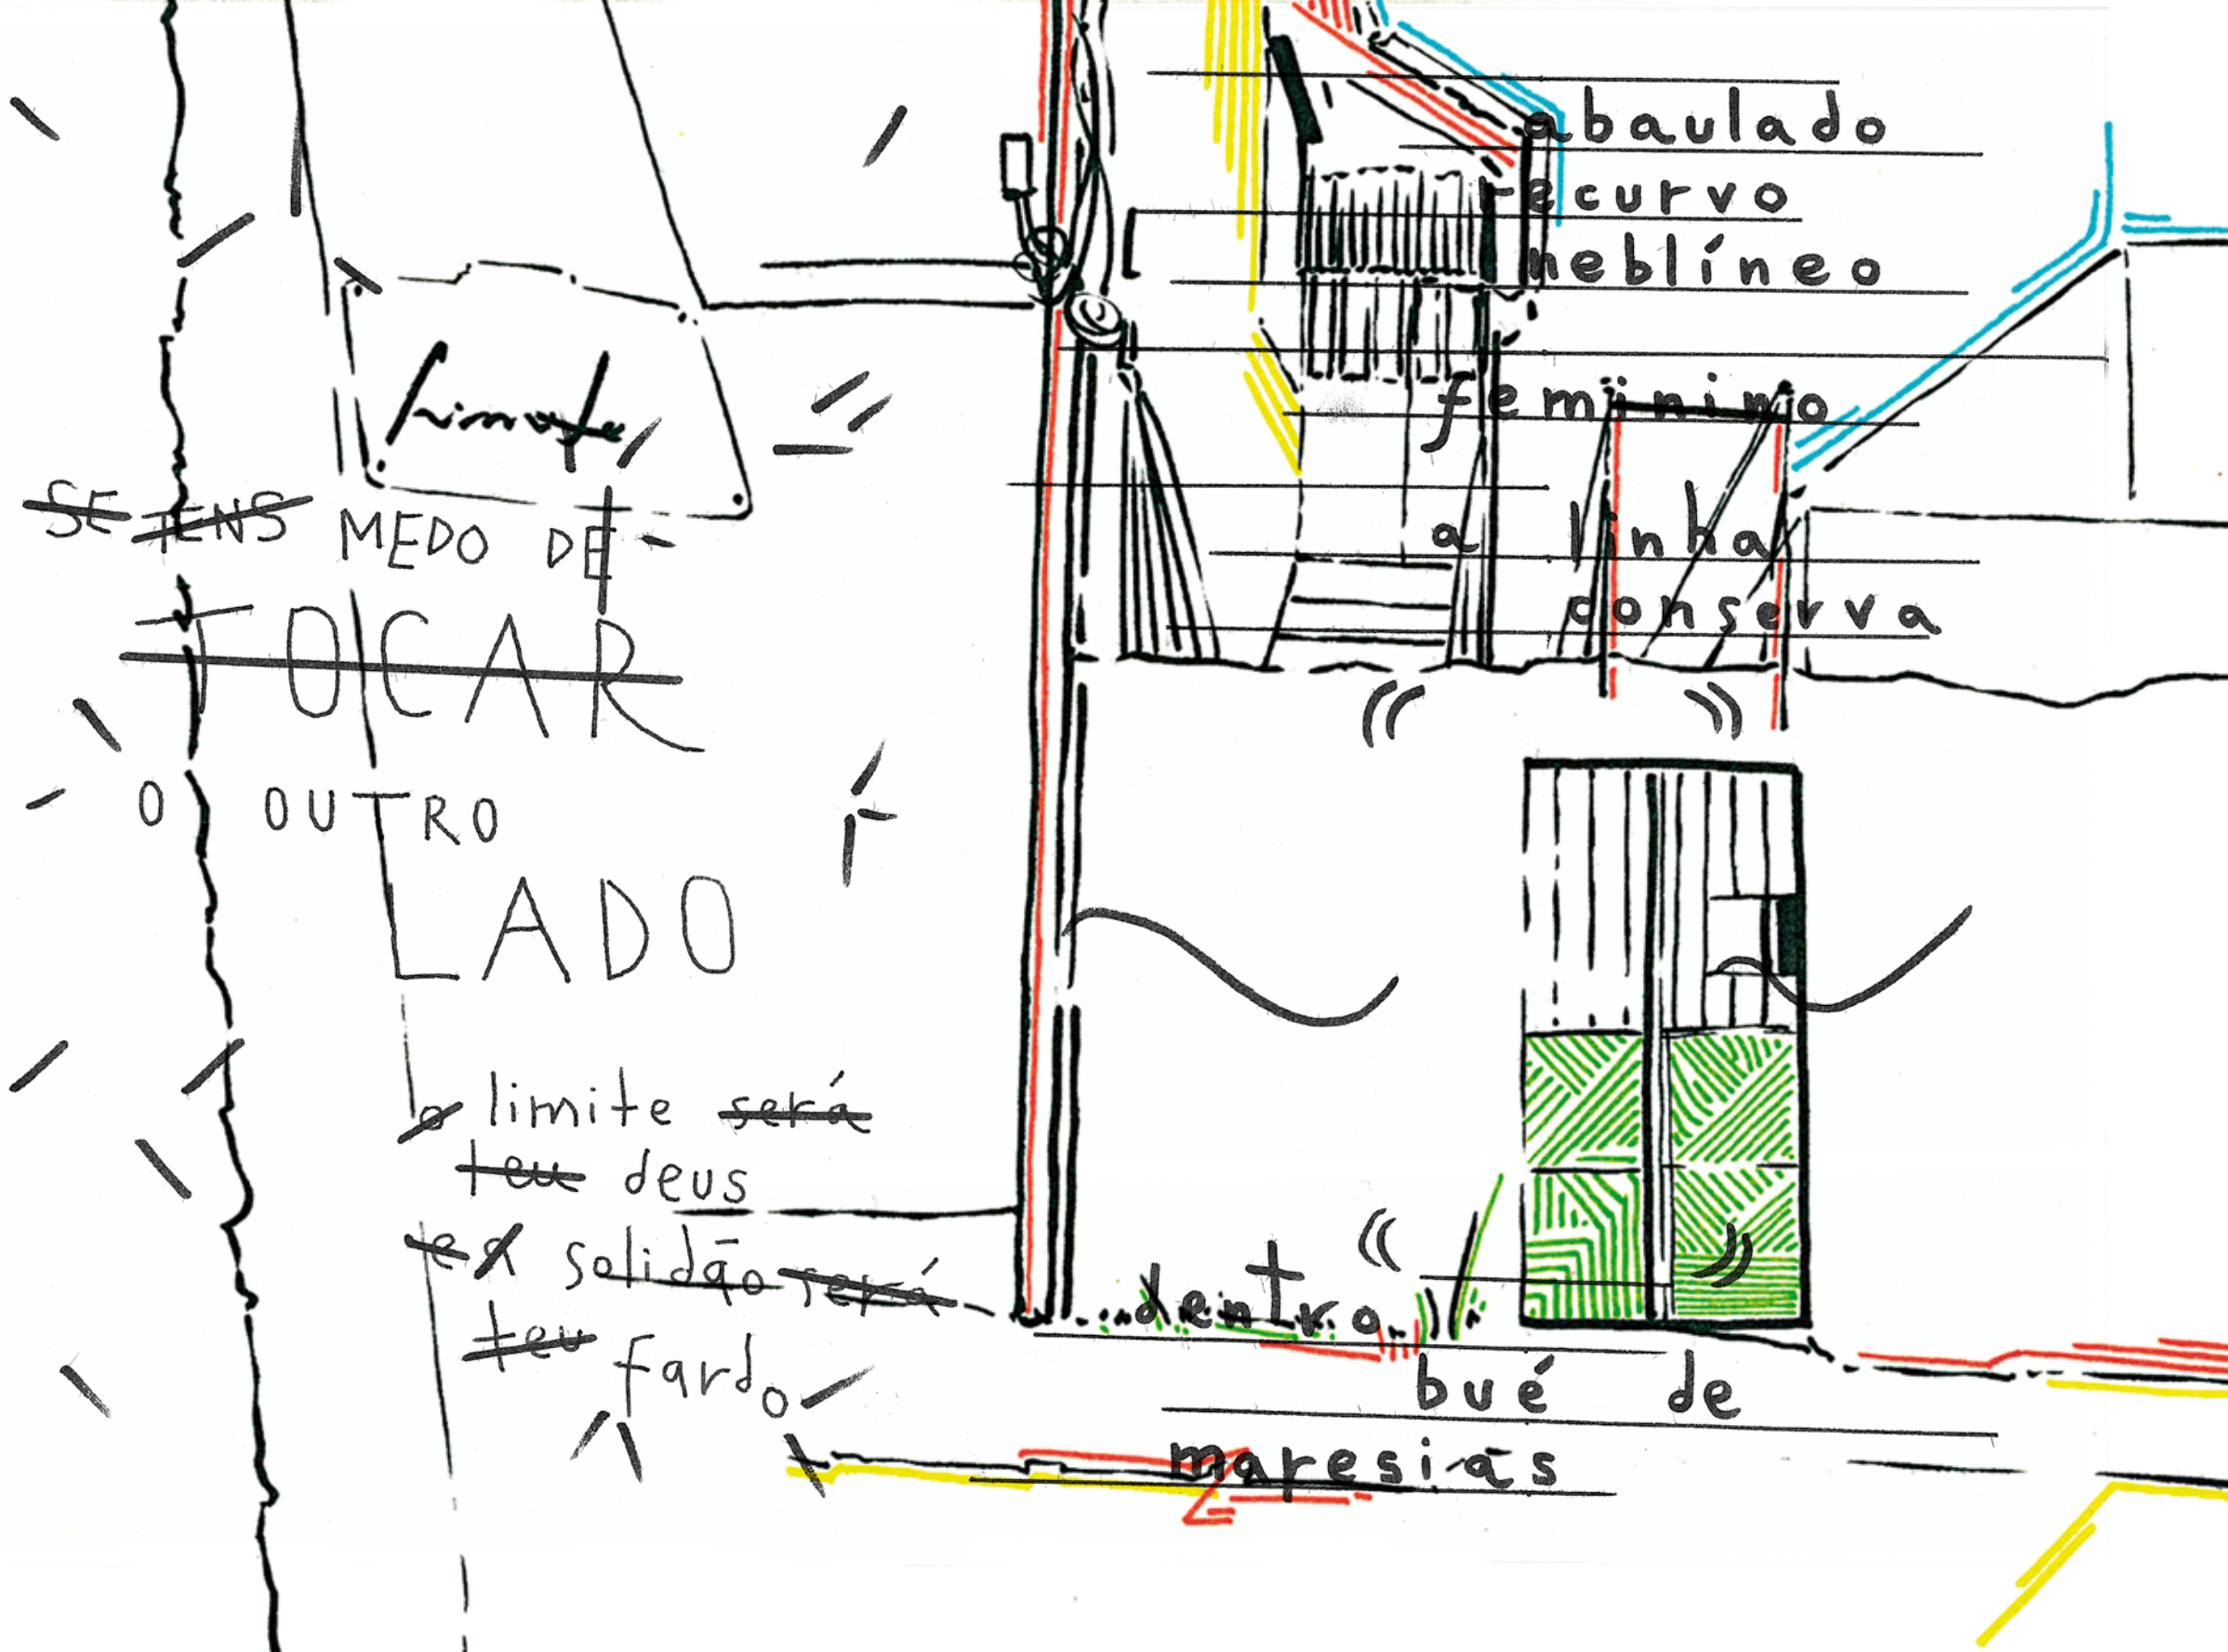 SE TENS MEDO DE
TOCAR
O OUTRO
LADO
o limite será
teu deus
e a solidão será
teu fardo
abaulado
recurvo
neblíneo
feminino
a linha
conserva
dentro
bué de
maresias